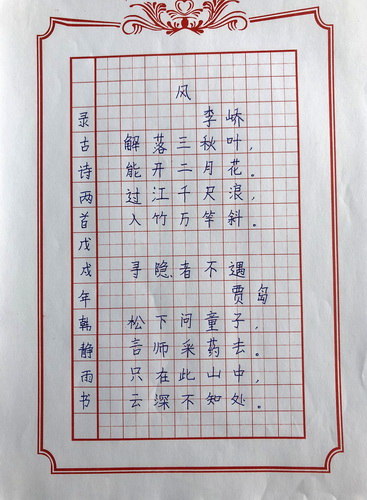 风
李峤
解落三秋叶，
能开二月花。
过江千尺浪，
入竹万竿斜。
寻隐者不遇
贾岛
松下问童子，
言师采药去。
只在此山中，
云深不知处。
录古诗两首戊戌年韩静雨书